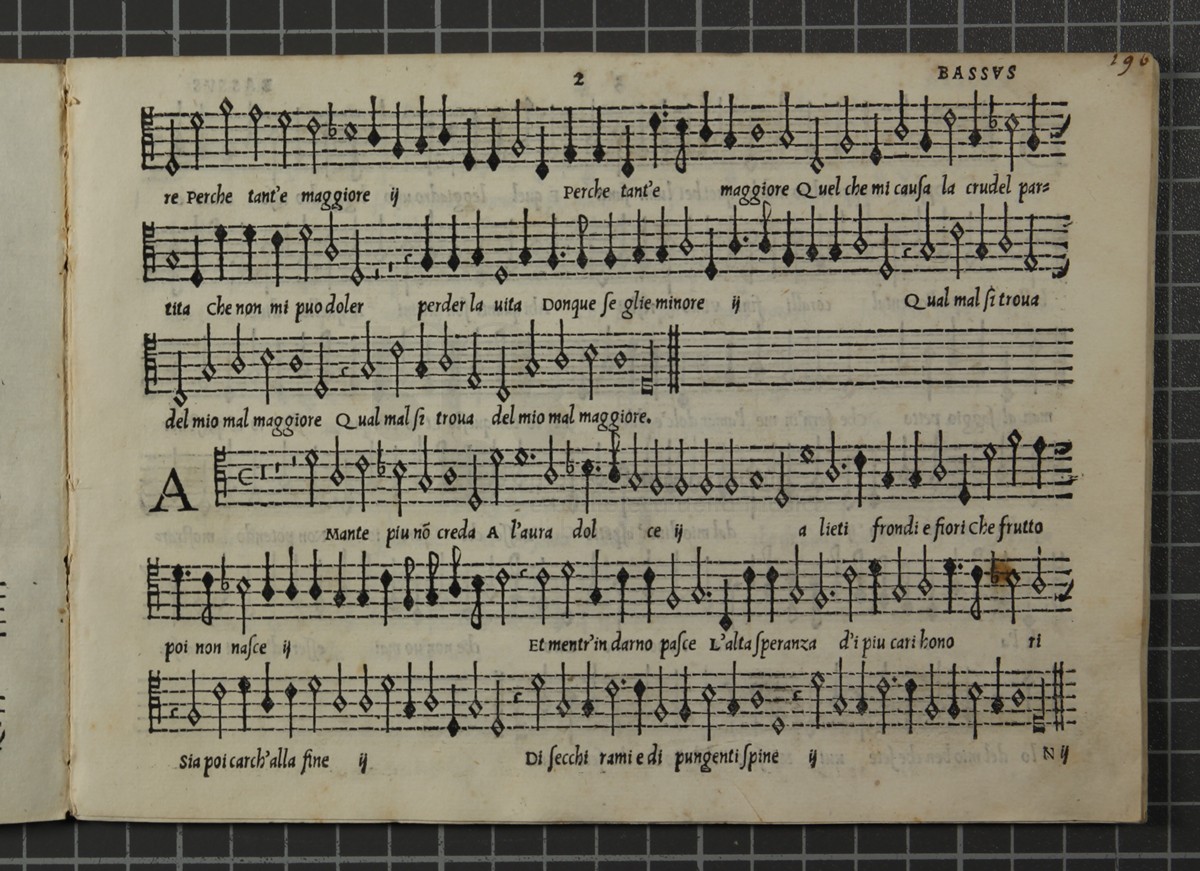 196
2 BASSVS
re Perche tant'e maggiore ij Perche tant'e maggiore Quel che mi cauſa la crudel par=
tita Che non mi puo doler perder la uita Donque ſe glie minore ij Qual mal ſi troua
del mio mal maggiore Qual mal ſi troua del mio mal maggiore.
AMante piu nõ creda A l'aura dol ce ij a lieti frondi e fiori Che frutto
poi non naſce ij Et mentr'in darno paſce L'alta ſperanza d'i piu cari hono ri
Sia poi carch'alla fine ij Di ſecchi rami e di pungenti ſpine ij
N ij